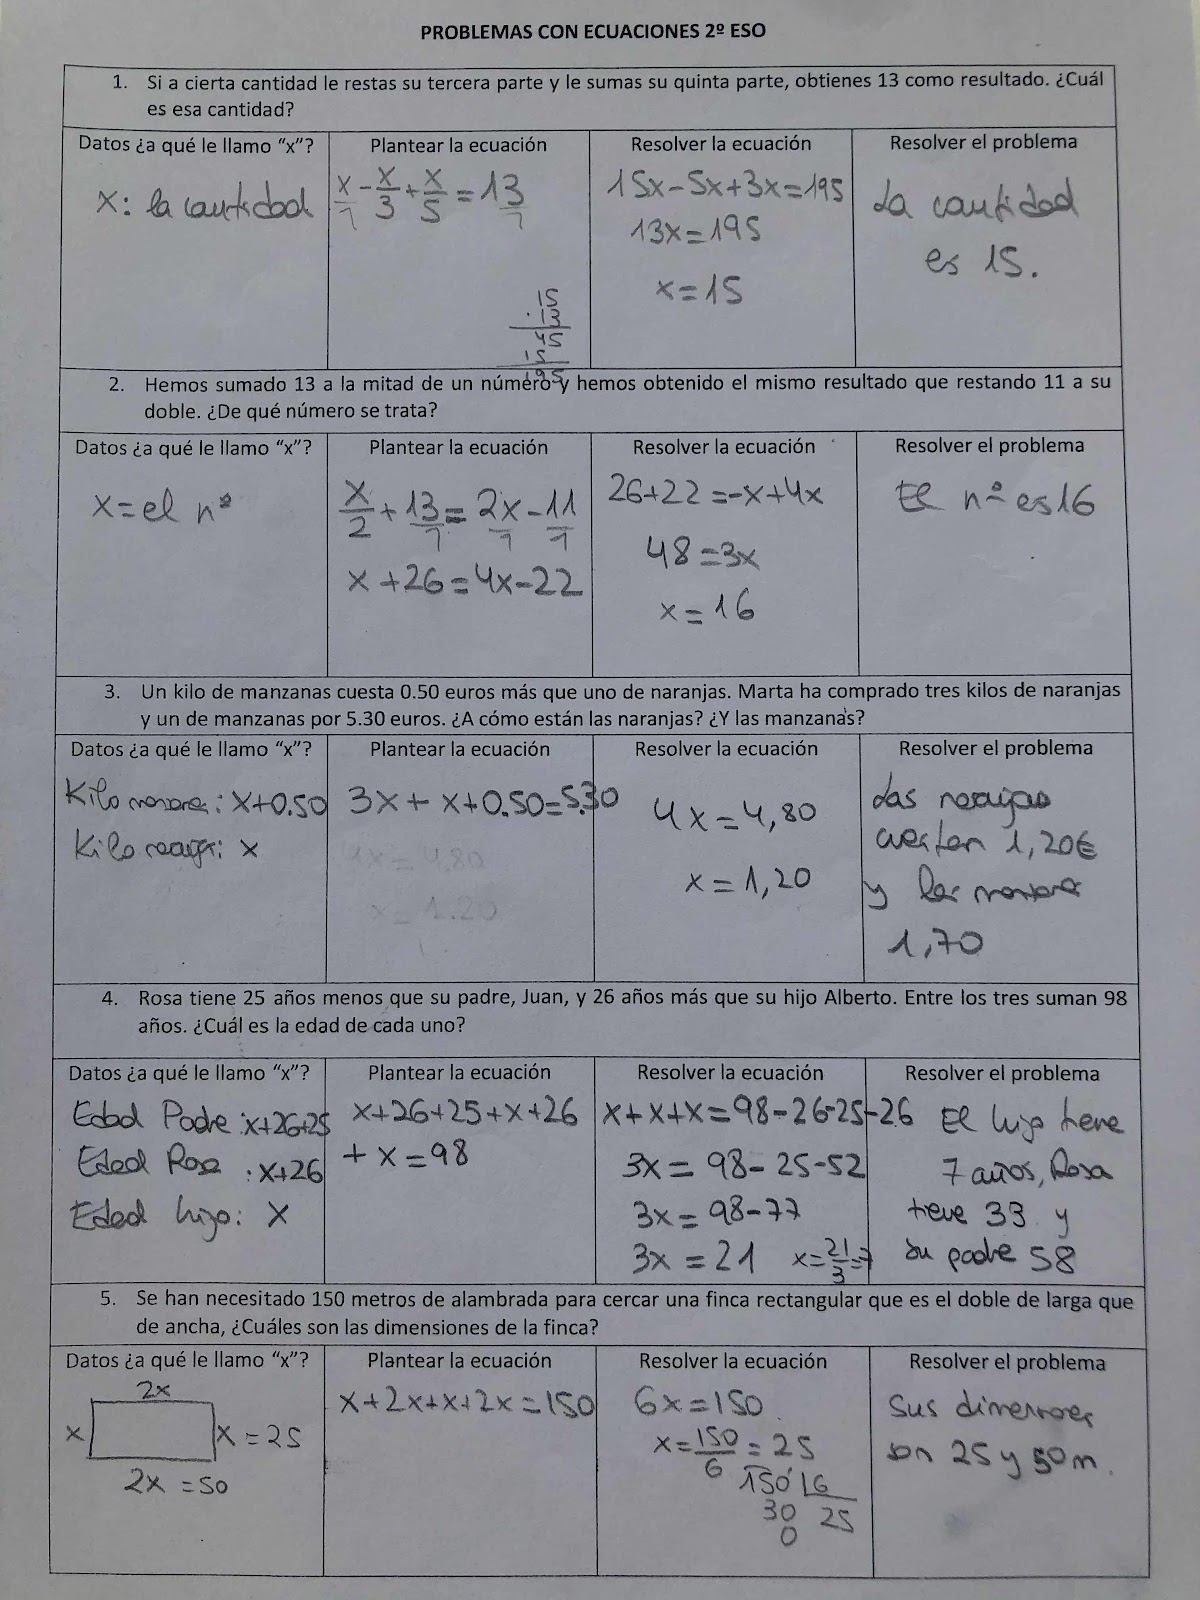 PROBLEMAS CON ECUACIONES 2º ESO
1. Si a cierta cantidad le restas su tercera parte y le sumas su quinta parte, obtienes 13 como resultado. ¿Cuál
es esa cantidad?
Datos ¿a qué le llamo “x”?
x: la cantidad
Plantear la ecuación
x/1 - x/3 + x/5 = 13/1
15
· 13
45
15
195
Resolver la ecuación
15x-5x+3x=195
13x=195
x=15
Resolver el problema
La cantidad
es 15.
2. Hemos sumado 13 a la mitad de un número y hemos obtenido el mismo resultado que restando 11 a su
doble. ¿De qué número se trata?
Datos ¿a qué le llamo “x”?
x=el nº
Plantear la ecuación
x/2 + 13/1 = 2x/1 - 11/1
x+26=4x-22
Resolver la ecuación
26+22=-x+4x
48=3x
x=16
Resolver el problema
El nº es 16
3. Un kilo de manzanas cuesta 0.50 euros más que uno de naranjas. Marta ha comprado tres kilos de naranjas
y un de manzanas por 5.30 euros. ¿A cómo están las naranjas? ¿Y las manzanas?
Datos ¿a qué le llamo “x”?
Kilo : x+0.50
Kilo : x
Plantear la ecuación
3x+x+0.50=5.30
4x=4.80
x=1.20
Resolver la ecuación
4x=4,80
x=1,20
Resolver el problema
Las naranjas
cuesten 1,20€
y las
1,70
4. Rosa tiene 25 años menos que su padre, Juan, y 26 años más que su hijo Alberto. Entre los tres suman 98
años. ¿Cuál es la edad de cada uno?
Datos ¿a qué le llamo “x”?
Edad Padre: x+26+25
Edad Rosa: x+26
Edad hijo: x
Plantear la ecuación
x+26+25+x+26
+x=98
Resolver la ecuación
x+x+x=98-26-25-26
3x=98-25-52
3x=98-77
3x=21 x=21/3=7
Resolver el problema
El hijo tiene
7 años, Rosa
tiene 33 y
su padre 58
5. Se han necesitado 150 metros de alambrada para cercar una finca rectangular que es el doble de larga que
de ancha, ¿Cuáles son las dimensiones de la finca?
Datos ¿a qué le llamo “x”?
2x
x x=25
2x=50
Plantear la ecuación
x+2x+x+2x=150
Resolver la ecuación
6x=150
x=150/6=25
150 6
30 25
0
Resolver el problema
Sus dimensiones
son 25 y 50m.